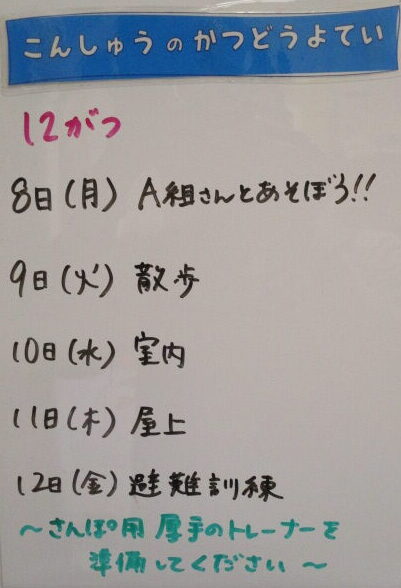 こんしゅうのかつどうよてい
12がつ
8日(月) A組さんとあそぼう!!
9日(火) 散歩
10日(水) 室内
11日(木) 屋上
12日(金) 避難訓練
～さんぽ用 厚手のトレーナーを
準備してください～